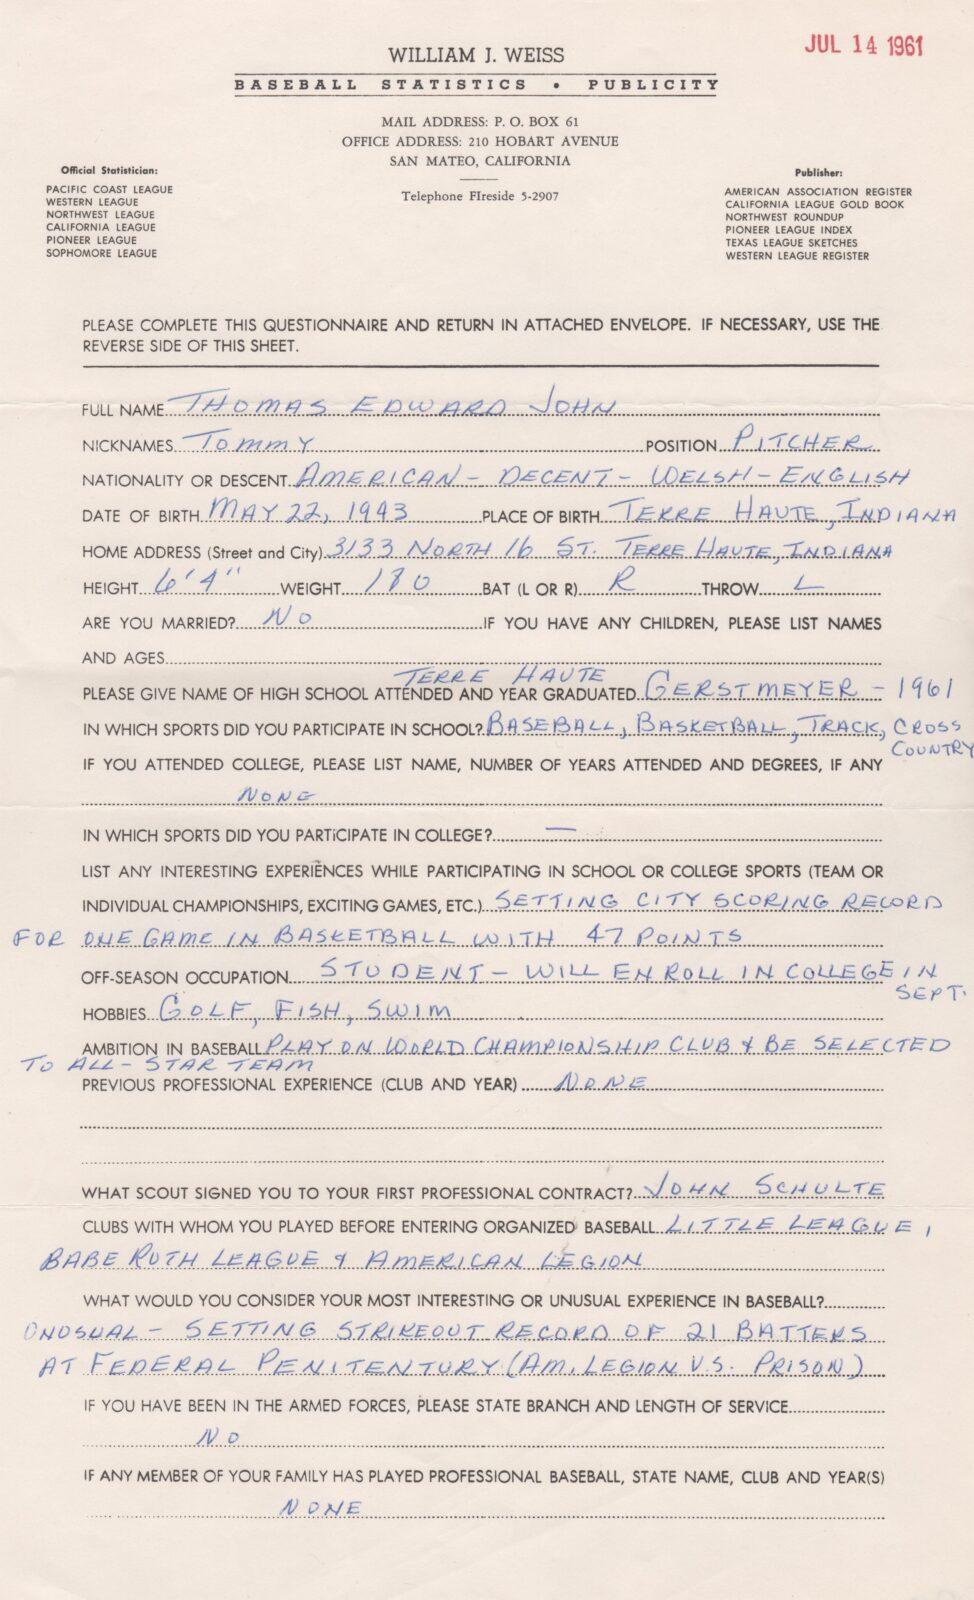 JUL 14 1961
WILLIAM J. WEISS
BASEBALL STATISTICS • PUBLICITY
MAIL ADDRESS: P. O. BOX 61
OFFICE ADDRESS: 210 HOBART AVENUE
SAN MATEO, CALIFORNIA
Telephone FIreside 5-2907
Official Statistician:
PACIFIC COAST LEAGUE
WESTERN LEAGUE
NORTHWEST LEAGUE
CALIFORNIA LEAGUE
PIONEER LEAGUE
SOPHOMORE LEAGUE
Publisher:
AMERICAN ASSOCIATION REGISTER
CALIFORNIA LEAGUE GOLD BOOK
NORTHWEST ROUNDUP
PIONEER LEAGUE INDEX
TEXAS LEAGUE SKETCHES
WESTERN LEAGUE REGISTER
PLEASE COMPLETE THIS QUESTIONNAIRE AND RETURN IN ATTACHED ENVELOPE. IF NECESSARY, USE THE
REVERSE SIDE OF THIS SHEET.
FULL NAME THOMAS EDWARD JOHN
NICKNAMES TOMMY POSITION PITCHER
NATIONALITY OR DESCENT AMERICAN - DECENT - WELSH - ENGLISH
DATE OF BIRTH MAY 22, 1943 PLACE OF BIRTH TERRE HAUTE, INDIANA
HOME ADDRESS (Street and City) 3133 NORTH 16 ST. TERRE HAUTE, INDIANA
HEIGHT 6'4" WEIGHT 180 BAT (L OR R) R THROW L
ARE YOU MARRIED? NO IF YOU HAVE ANY CHILDREN, PLEASE LIST NAMES
AND AGES
TERRE HAUTE
PLEASE GIVE NAME OF HIGH SCHOOL ATTENDED AND YEAR GRADUATED GERSTMEYER - 1961
IN WHICH SPORTS DID YOU PARTICIPATE IN SCHOOL? BASEBALL, BASKETBALL, TRACK, CROSS
COUNTRY
IF YOU ATTENDED COLLEGE, PLEASE LIST NAME, NUMBER OF YEARS ATTENDED AND DEGREES, IF ANY
NONE
IN WHICH SPORTS DID YOU PARTICIPATE IN COLLEGE? —
LIST ANY INTERESTING EXPERIENCES WHILE PARTICIPATING IN SCHOOL OR COLLEGE SPORTS (TEAM OR
INDIVIDUAL CHAMPIONSHIPS, EXCITING GAMES, ETC.) SETTING CITY SCORING RECORD
FOR ONE GAME IN BASKETBALL WITH 47 POINTS
OFF-SEASON OCCUPATION STUDENT - WILL ENROLL IN COLLEGE IN
SEPT.
HOBBIES GOLF, FISH, SWIM
AMBITION IN BASEBALL PLAY ON WORLD CHAMPIONSHIP CLUB & BE SELECTED
TO ALL-STAR TEAM
PREVIOUS PROFESSIONAL EXPERIENCE (CLUB AND YEAR) NONE
WHAT SCOUT SIGNED YOU TO YOUR FIRST PROFESSIONAL CONTRACT? JOHN SCHULTE
CLUBS WITH WHOM YOU PLAYED BEFORE ENTERING ORGANIZED BASEBALL LITTLE LEAGUE,
BABE RUTH LEAGUE & AMERICAN LEGION
WHAT WOULD YOU CONSIDER YOUR MOST INTERESTING OR UNUSUAL EXPERIENCE IN BASEBALL?
UNUSUAL - SETTING STRIKEOUT RECORD OF 21 BATTERS
AT FEDERAL PENITENTURY (AM. LEGION V.S. PRISON)
IF YOU HAVE BEEN IN THE ARMED FORCES, PLEASE STATE BRANCH AND LENGTH OF SERVICE
NO
IF ANY MEMBER OF YOUR FAMILY HAS PLAYED PROFESSIONAL BASEBALL, STATE NAME, CLUB AND YEAR(S)
NONE